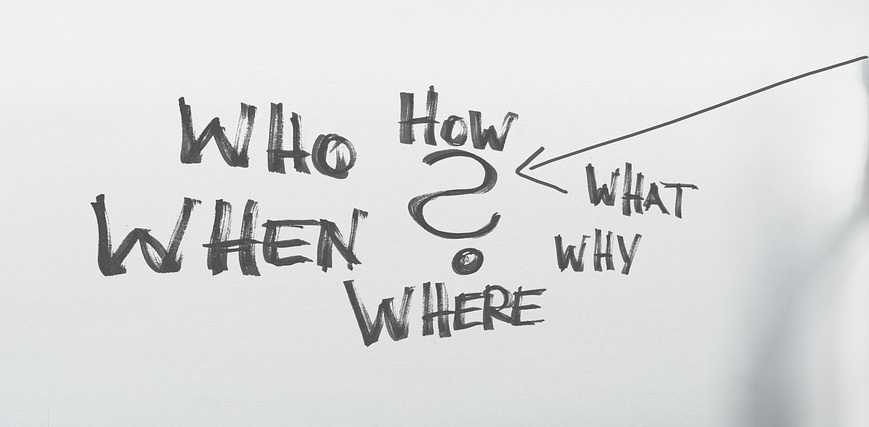 WHO
HOW
WHAT
WHEN
?
WHY
WHERE